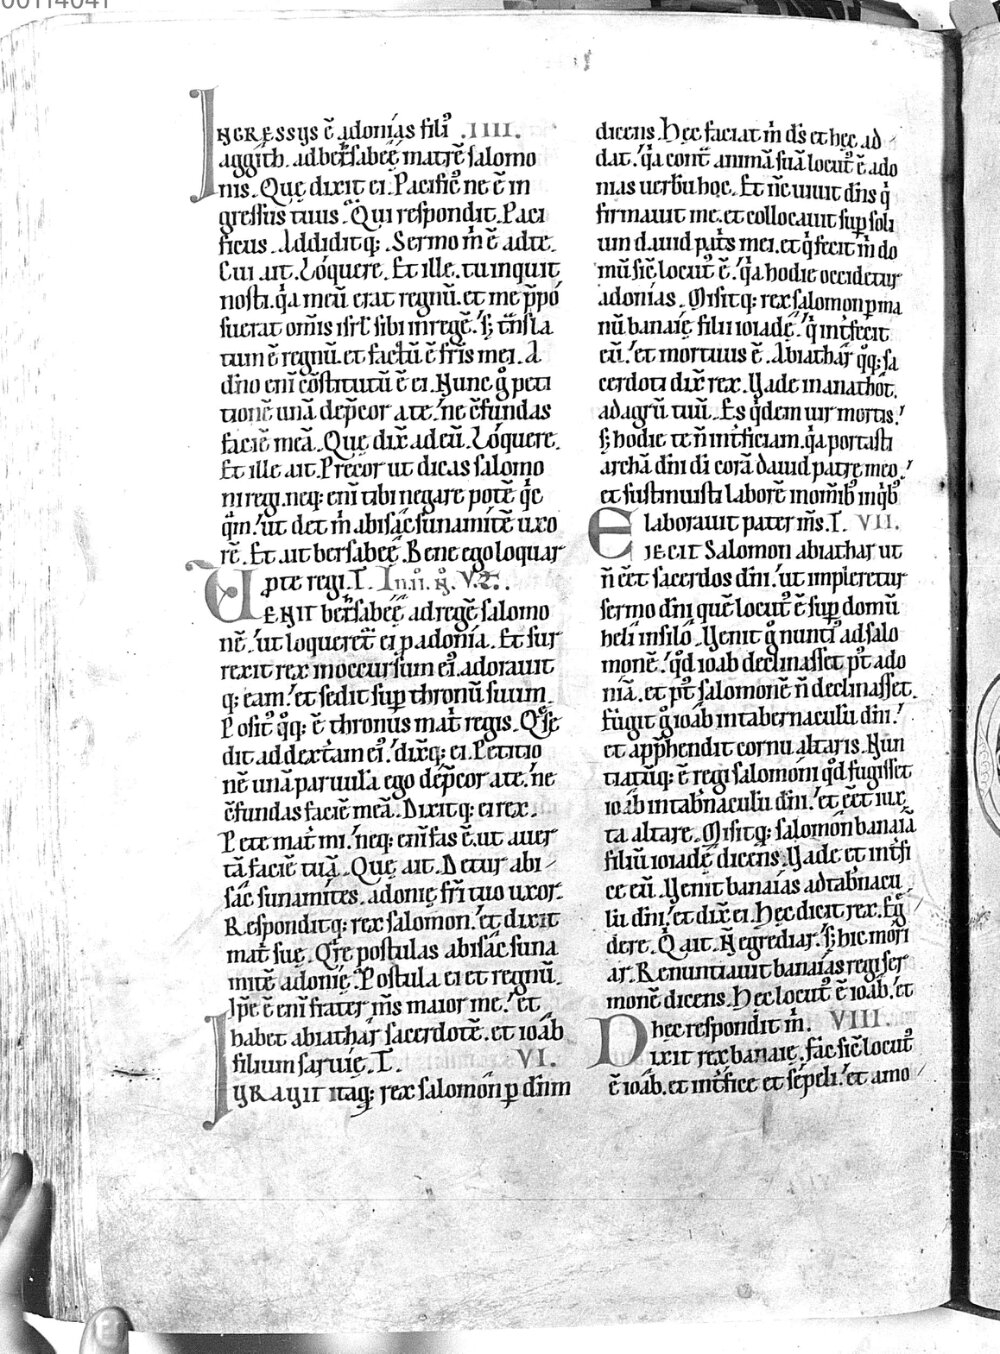 00114041
INGRESSUS ē adonías filiꝰ .IIII.
aggith. ad bersabeę matrē salomo
nis. Quę dixit ei. Pacificꝰ ne ē in
gressus tuus. Qui respondit. Paci
ficus. Addiditq;. Sermo m̄ ē ad te.
Cui ait. Lóquere. Et ille. tu inquit
nosti. q̇a meū erat regnū. et me p̄pó
suerat om̄is isrl̄ sibi in regē. s; tn̄sla
tum ē regnū. et factū ē fr̄is mei. A
dn̄o eni cōstitutū ē ei. Nunc g̊ peti
tionē unā dep̄cor a te. ne cōfundas
faciē meā. Quę dix̄ ad eū. Lóquere.
Et ille ait. Precor ut dicas salomo
ni regi. neq; eni tibi negare potē q̇c
q̇m. ut det m̄ abisác sunamítē uxo
rē. Et ait bersabeę. Bene ego loquar
p te regi. I. In.ii. N̊. V.
UENIT bersabeę ad regē salomo
nē. ut loqueret̄ ei p adonía. Et sur
rexit rex in occursum eiꝰ. adorauit
q; eam. et sedit sup thronū suum.
Positꝰ q̊q; ē thronus mat̓ regis. Quę se
dit ad dextam eiꝰ. dixq; ei. Petitio
nē unā paruula ego dep̄cor a te. ne
cōfundas faciē meā. Dixitq; ei rex.
Pete mat̓ mi. neq; eni fas ē. ut auer
tā faciē tuā. Quę ait. Detur abi
sác sunamítes. adonię fr̄i tuo uxor.
Responditq; rex salomon. et dixit
mat̓ suę. Qre postulas abisác suna
mitē adonię. Postula ei et regnū.
Ip̄e ē eni frater m̄s maior me. et
habet abiathár sacerdotē. et ioáb
filium saruię. I. VI.
IURAUIT itaq; rex salomón p dn̄m
dicens. Hęc faciat m̄ ds̄ et hęc ad
dat. q̇a cont̄ animā suā locutꝰ ē ado
nias uerbū hoc. Et nc̄ uiuit dn̄s q̇
firmauit me. et collocauit sup soli
um dauid pat̓s mei. et q̇ fecit m̄ do
mū. sic̄ locutꝰ ē. q̇a hodie occidetur
adonías. Misitq; rex salomon p ma
nū banaię filii ioiadę. q̇ int̓fecit
eū. et mortuus ē. Abiathár q̊q; sa
cerdoti dix̄ rex. Uade in anathót,
ad agrū tuū. Es q̇dem uir mortis.
s; hodie te n̄ int̓ficiam. q̇a portasti
archā dn̄i di corā dauid patre meo.
et sustinuisti laborē in om̄ibꝰ in q̇bꝰ
laborauit pater m̄s. I. VII.
EIECIT Salomon abiathar ut
n̄ eēt sacerdos dn̄i. ut impleretur
sermo dn̄i quē locutꝰ ē sup domū
heli in siló. Uenit g̊ nuntiꝰ ad salo
monē. q̇d ioab declinasset pꝰt ado
niā. et pꝰt salomonē n̄ declinasset.
Fúgit g̊ ioáb in tabernaculū dn̄i.
et app̄hendit cornu altaris. Nun
tiatūq; ē regi salomóni q̇d fugisset
ioáb in tab̄naculū dn̄i. et eēt iux
ta altare. Misitq; salomón banaiā
filiū ioiadę dicens. Uade et int̓fi
ce eū. Uenit banaías ad tab̄nacu
lū dn̄i. et dix̄ ei. Hęc dicit rex. Eg̊
dere. Q̇ ait. N̄ egrediar. s; hic mori
ar. Renuntiauit banaías regi ser
monē dicens. Hęc locutꝰ ē ioáb. et
hęc respondit m̄. VIII.
DIXIT rex banaię. fác sic̄ locutꝰ
ē ioáb. et int̓fice et sépeli. et amo